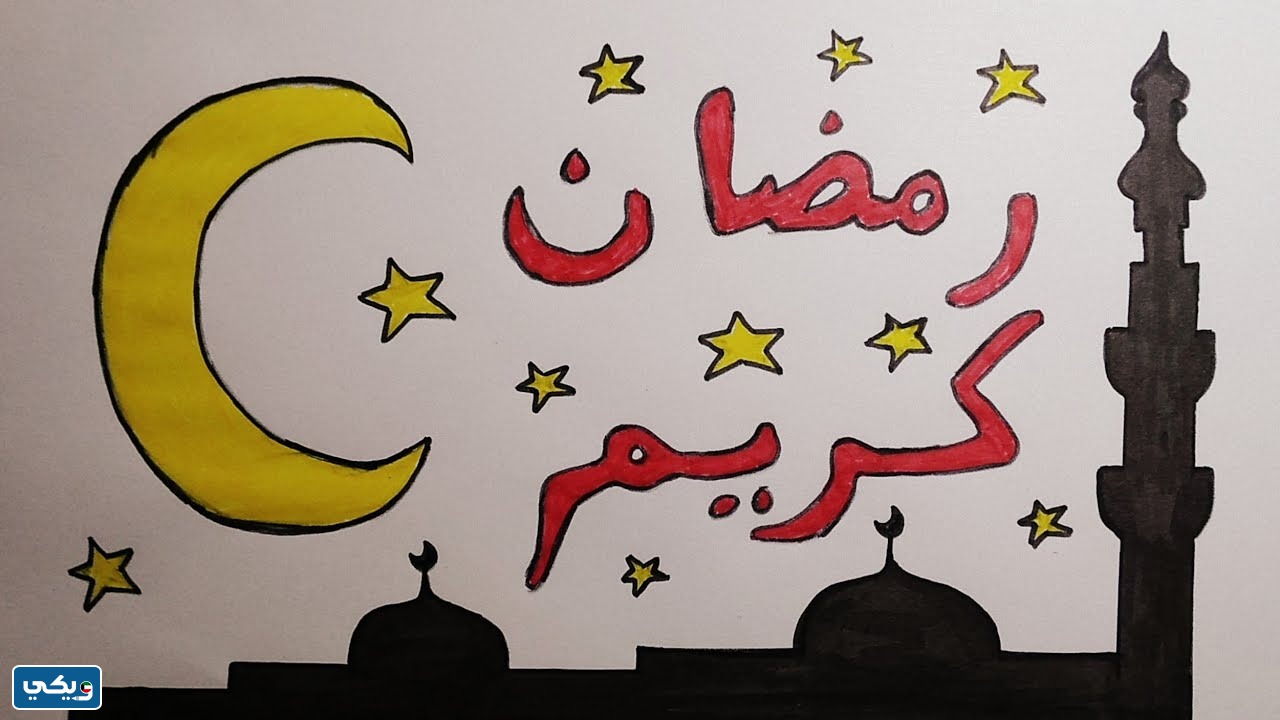 رمضان
كريم
ويكي